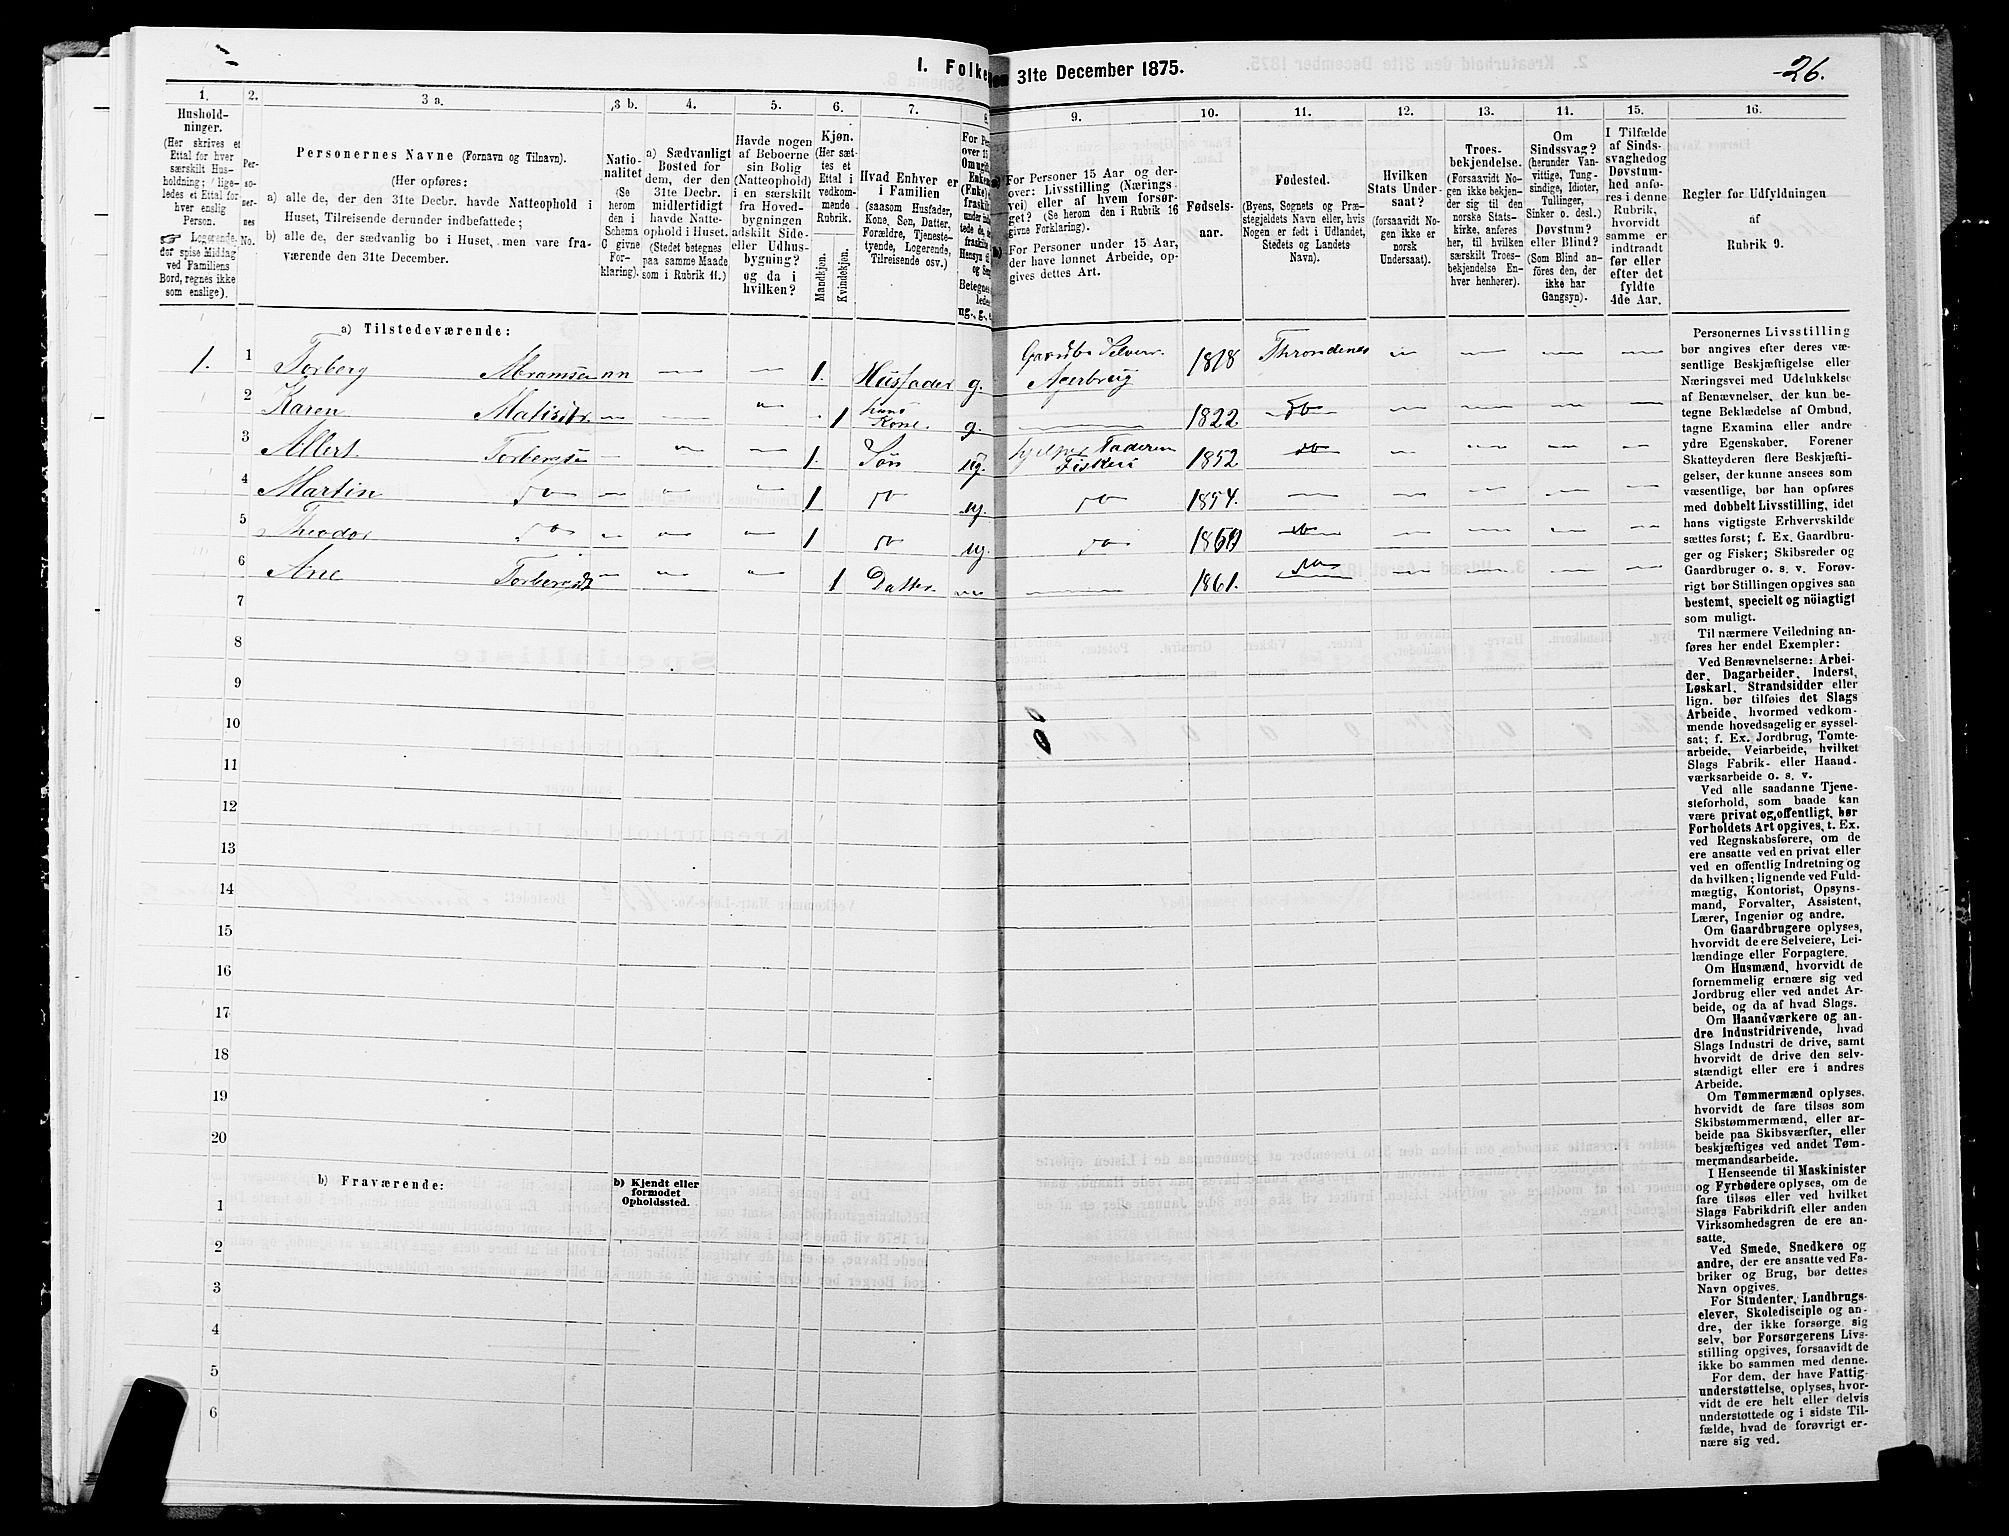 I. Folke
om 31te December 1875.
26.
1.
2.
3 a.
3 b.
4.
5.
6.
7.
8.
9.
10.
11.
12.
13.
14.
15.
16.
Hushold-
ninger.
(Her skrives et
Ettal for hver
særskilt Hus-
holdning; lige-
ledes et Ettal for
hver enslig
Person.
☞ Logerende,
der spise Middag
ved Familiens
Bord, regnes ikke
som enslige).
Per-
so-
ner-
nes
No.
Personernes Navne (Fornavn og Tilnavn).
(Her opføres:
a) alle de, der den 31te Decbr. havde Natteophold i
Huset, Tilreisende derunder indbefattede;
b) alle de, der sædvanlig bo i Huset, men vare fra-
værende den 31te December.
Natio-
nalitet
(Se
herom
den i
Schema
C givne
For-
klaring).
a) Sædvanligt
Bosted for
dem, der den
31te Decbr.
midlertidigt
havde Natte-
ophold i Huset.
(Stedet betegnes
paa samme Maade
som i Rubrik 11.)
Havde nogen
af Beboerne
sin Bolig
(Natteophold)
i en særskilt
fra Hoved-
bygningen
adskilt Side-
eller Udhus-
bygning?
og da i
hvilken?
Kjøn.
(Her sæt-
tes et
Ettal i
vedkom-
mende
Rubrik.
Mandkjøn.
Kvindekjøn.
Hvad Enhver er
i Familien
(saasom Husfader,
Kone, Søn, Datter,
Forældre, Tjeneste-
tyende, Logerende,
Tilreisende osv.).
For Pe
over 15
Om ugift
Enkem
(Enke),
fraskilt
under ind
tede de,
fraskilte
Hensyn til
og Sen
Betegnes
ledes
ug., g.,
a) For Personer 15 Aar og der-
over: Livsstilling (Nærings
vei) eller af hvem forsør-
get? (Se herom den i Rubrik 16
givne Forklaring).
b) For Personer under 15 Aar,
der have lønnet Arbeide, op-
gives dettes Art.
Fødsels-
aar.
Fødested.
(Byens, Sognets og Præ-
stegjeldets Navn eller, hvis
Nogen er født i Udlandet,
Stedets og Landets
Navn).
Hvilken
Stats Under-
saat?
(forsaavidt No-
gen ikke er
norsk
Undersaat).
Troes-
bekjendelse.
(Forsaavidt No-
gen ikke bekjen-
der sig til den
norske Stats-
kirke, anføres
her, til hvilken
særskilt Troes-
bekjendelse En-
hver henhører).
Om
Sindssvag?
(herunder Van-
vittige, Tung-
sindige, Idioter,
Tullinger,
Sinker o. desl.)
Døvstum?
eller Blind?
(Som Blind an-
føres den, der
ikke har
Gangsyn).
I Tilfælde
af Sinds-
svaghed og
Døvstum-
hed anfø-
res i denne
Rubrik,
hvorvidt
samme er
indtraadt
før eller
efter det
fyldte
4de Aar.
Regler for Udfyldningen
af
Rubrik 9.
a) Tilstedeværende:
1. 1 Torberg Abramsen nn 1. Husfader g. Gaardb. Selveier Agerbrug 1818 Throndenes
2 Karen Matisdr. 1 hans Kone g. 1822 do
3 Albert Torbergsen 1. Søn ug. hjelper Faderen Fiskeri 1852 do
4 Martin do 1 do ug. do 1854.
5 Theodor do 1 do ug. do 1860 do
6 Ane Torbergsdt 1 Datter 1861. do
7
8
9
10
11
12
13
14
15
16
17
18
19
20
b) Fraværende:
b) Kjendt eller
formodet
Opholdssted.
1
2
3
4
5
6
Personernes Livsstilling
bør angives efter deres væ-
sentlige Beskjæftigelse eller
Næringsvei med Udelukkelse
af Benævnelser, der kun be-
tegne Beklædelse af Ombud,
tagne Examina eller andre
ydre Egenskaber. Forener
Skatteyderen flere Beskjæfti-
gelser, der kunne ansees som
væsentlige, bør han opføres
med dobbelt Livsstilling, idet
hans vigtigste Erhvervskilde
sættes først; f. Ex. Gaardbru-
ger og Fisker; Skibsreder og
Gaardbruger o. s. v. Forøv-
rigt bør Stillingen opgives saa
bestemt, specielt og nöiagtigt
som muligt.
Til nærmere Veiledning an-
føres her endel Exempler:
Ved Benævnelserne: Arbei-
der, Dagarbeider, Inderst,
Løskarl, Strandsidder eller
lign. bør tilføies det Slags
Arbeide, hvormed vedkom-
mende hovedsagelig er syssel-
sat; f. Ex. Jordbrug, Tomte-
arbeide, Veiarbeide, hvilket
Slags Fabrik- eller Haand-
værksarbeide o. s. v.
Ved alle saadanne Tjene-
steforhold, som baade kan
være privat og offentligt, bør
Forholdets Art opgives, t. Ex.
ved Regnskabsførere, om de
ere ansatte ved en privat eller
ved en offentlig Indretning og
da hvilken; lignende ved Fuld-
mægtig, Kontorist, Opsyns-
mand, Forvalter, Assistent,
Lærer, Ingeniør og andre.
Om Gaardbrugere oplyses,
hvorvidt de ere Selveiere, Lei-
lændinge eller Forpagtere.
Om Husmænd, hvorvidt de
fornemmelig ernære sig ved
Jordbrug eller ved andet Ar-
beide, og da af hvad Slags.
Om Haandværkere og an-
dre Industridrivende, hvad
Slags Industri de drive, samt
hvorvidt de drive den selv-
stændigt eller ere i andres
Arbeide.
Om Tømmermænd oplyses,
hvorvidt de fare tilsøs som
Skibstømmermænd, eller ar-
beide paa Skibsværfter, eller
beskjæftiges ved andet Tøm-
mermandsarbeide.
I Henseende til Maskinister
og Fyrbødere oplyses, om de
fare tilsøs eller ved hvilket
Slags Fabrikdrift eller anden
Virksomhedsgren de ere an-
satte.
Ved Smede, Snedkere og
andre, der ere ansatte ved Fa-
briker og Brug, bør dettes
Navn opgives.
For Studenter, Landbrugs-
elever, Skoledisciple og an-
dre, der ikke forsørge sig
selv, bør Forsørgerens Livs-
stilling opgives, forsaavidt de
ikke bo sammen med denne.
For dem, der have Fattig-
understøttelse, oplyses, hvor-
vidt de ere helt eller delvis
understøttede og i sidste Til-
fælde, hvad de forøvrigt er-
nære sig ved.